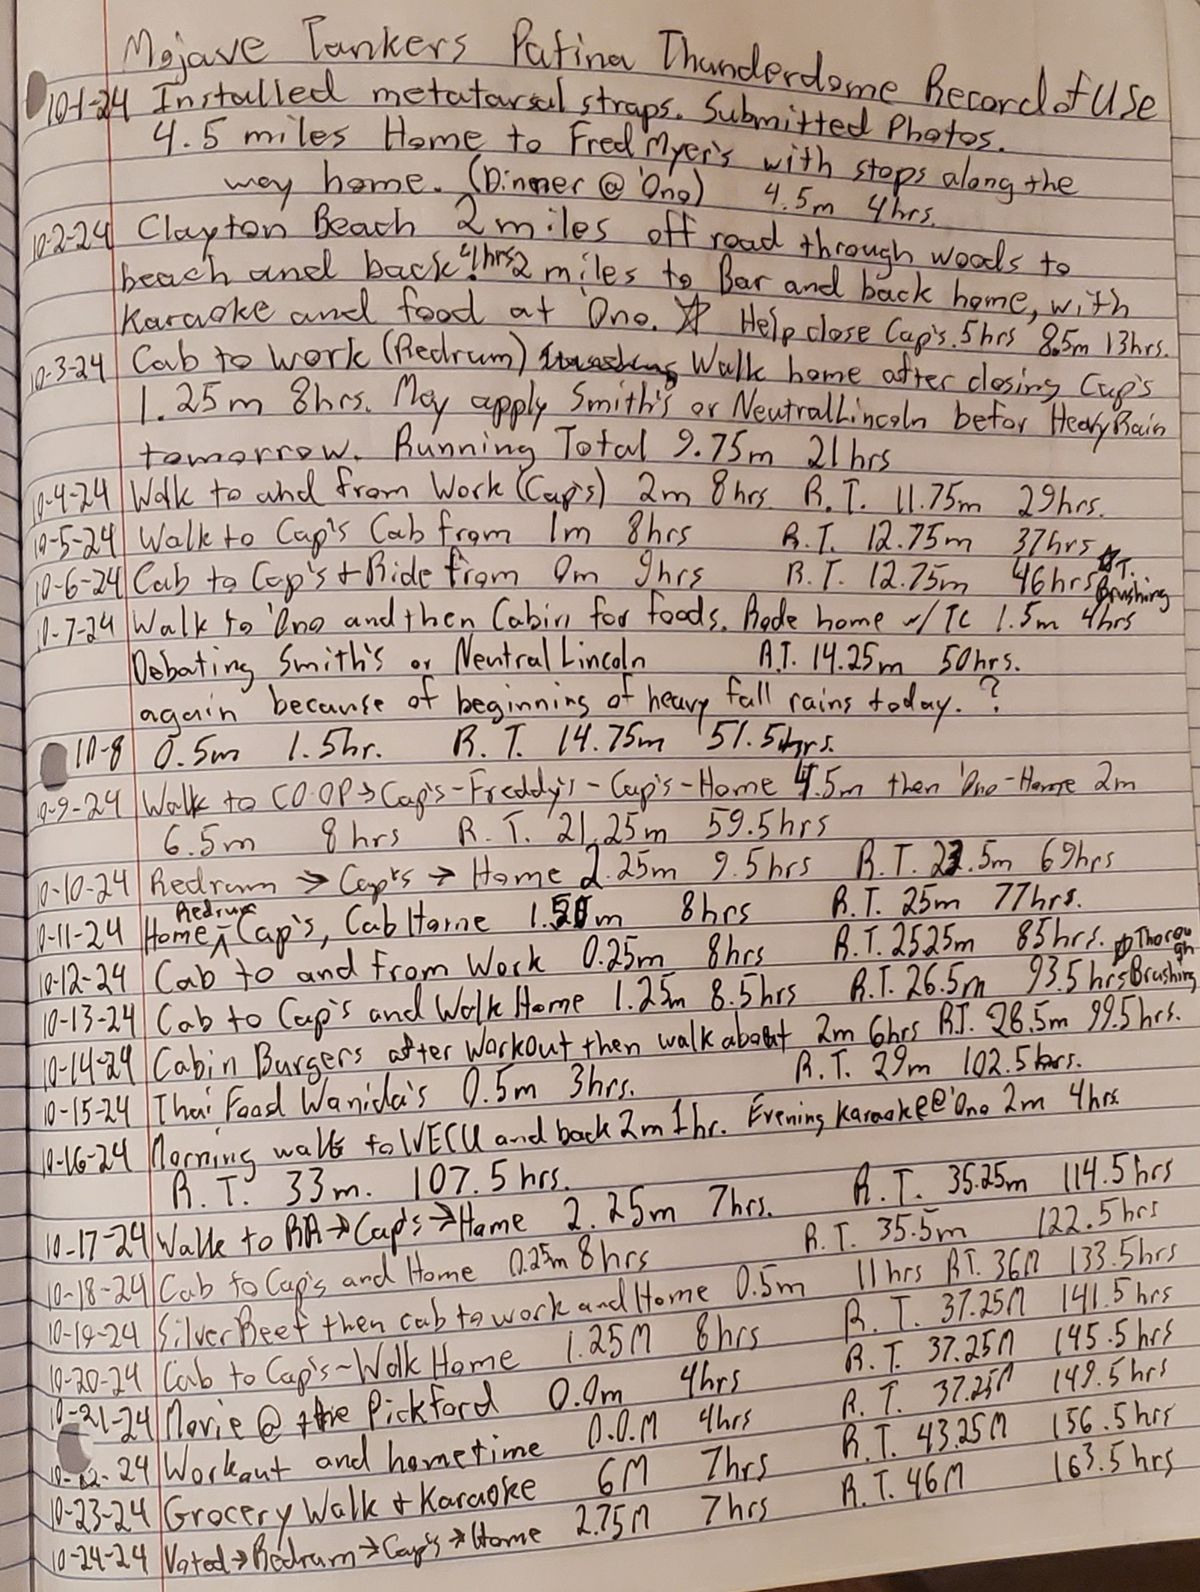 Mojave Tankers Patina Thunderdome Record of Use
10-1-24 Installed metatarsal straps. Submitted Photos.
4.5 miles Home to Fred Myer's with stops along the
way home. (Dinner @ 'Ono) 4.5m 4hrs.
10-2-24 Clayton Beach 2 miles off road through woods to
beach and back. 4hrs 2 miles to Bar and back home, with
Karaoke and food at 'Ono. ☆ Help close Cap's. 5hrs 8.5m 13hrs.
10-3-24 Cab to work (Redrum) Walk home after closing Cap's
1.25m 8hrs. May apply Smith's or Neutral Lincoln befor Heavy Rain
tomorrow. Running Total 9.75m 21hrs
10-4-24 Walk to and from Work (Cap's) 2m 8hrs. R.T. 11.75m 29hrs.
10-5-24 Walk to Cap's Cab from 1m 8hrs R.T. 12.75m 37hrs
10-6-24 Cab to Cap's + Ride from 0m 9hrs R.T. 12.75m 46hrs ☆T. Brushing
10-7-24 Walk to 'Ono and then Cabin for foods. Rode home w/ TC 1.5m 4hrs
Debating Smith's or Neutral Lincoln R.T. 14.25m 50hrs.
again because of beginning of heavy fall rains today. ?
10-8 0.5m 1.5hr. R.T. 14.75m 51.5hrs.
10-9-24 Walk to CO.OP→Cap's-Freddy's-Cap's-Home 4.5m then 'Ono-Home 2m
6.5m 8hrs R.T. 21.25m 59.5hrs
10-10-24 Redrum → Cap's → Home 2.25m 9.5hrs R.T. 23.5m 69hrs
10-11-24 Home ^Redrum Cap's, Cab Home 1.50m 8hrs R.T. 25m 77hrs.
10-12-24 Cab to and from Work 0.25m 8hrs R.T. 25.25m 85hrs.
10-13-24 Cab to Cap's and Walk Home 1.25m 8.5hrs R.T. 26.5m 93.5hrs ☆Thorough Brushing
10-14-24 Cabin Burgers after Workout then walk about 2m 6hrs R.T. 28.5m 99.5hrs.
10-15-24 Thai Food Wanida's 0.5m 3hrs. R.T. 29m 102.5hrs.
10-16-24 Morning walk to WECU and back 2m 1hr. Evening Karaoke @ 'Ono 2m 4hrs.
R.T. 33m. 107.5hrs.
10-17-24 Walk to RR→Cap's→Home 2.25m 7hrs. R.T. 35.25m 114.5hrs
10-18-24 Cab to Cap's and Home 0.25m 8hrs R.T. 35.5m 122.5hrs
10-19-24 Silver Beef then cab to work and Home 0.5m 11hrs R.T. 36M 133.5hrs
10-20-24 Cab to Cap's-Walk Home 1.25M 8hrs R.T. 37.25M 141.5hrs
10-21-24 Movie @ the Pickford 0.0m 4hrs R.T. 37.25M 145.5hrs
10-22-24 Workout and hometime 0.0.M 4hrs R.T. 37.25M 149.5hrs
10-23-24 Grocery Walk + Karaoke 6M 7hrs R.T. 43.25M 156.5hrs
10-24-24 Voted→Redrum→Cap's→Home 2.75M 7hrs R.T. 46M 163.5hrs